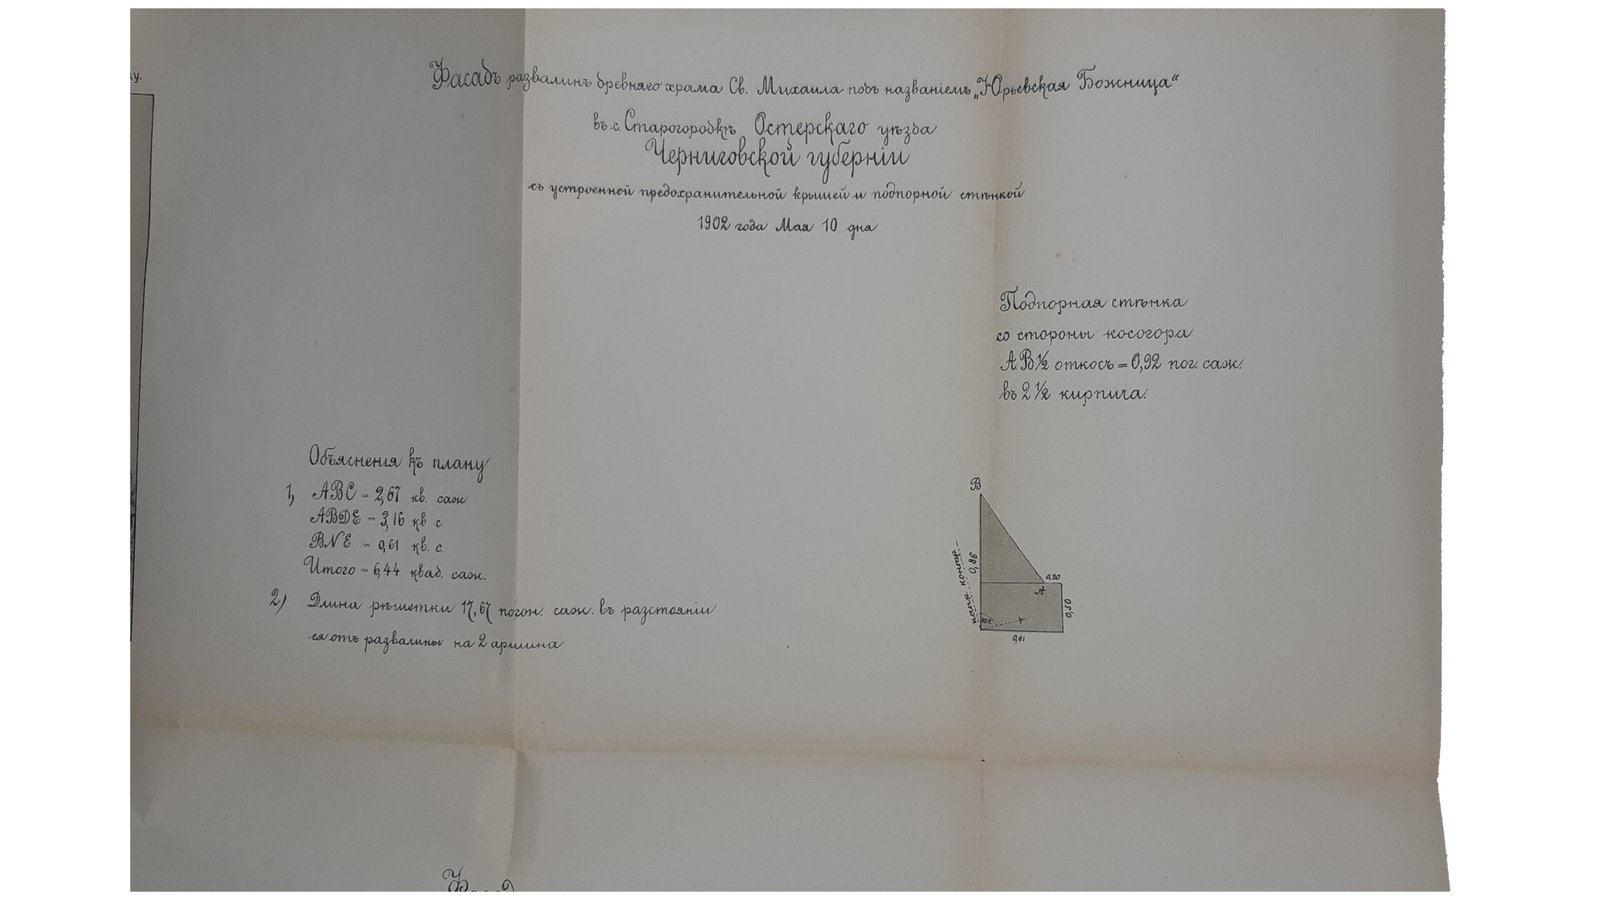 Фасадъ развалинъ древняго храма Св. Михаила подъ названіемъ „Юрьевская Божница“
въ с. Старогородкѣ Остерскаго уѣзда
Черниговской губерніи
съ устроенной предохранительной крышей и подпорной стѣнкой
1902 года Мая 10 дня
Подпорная стѣнка
со стороны косогора
АВ½ откосъ = 0,92 пог. саж.
въ 2 ½ кирпича.
Объясненія къ плану
1, ABC = 2,67 кв. саж.
ABDE = 3,16 кв с.
BNE = 0,61 кв. с.
Итого = 6,44 квад. саж.
2) Длина рѣшетки 17,67 погон. саж. въ разстояніи
ея отъ развалины на 2 аршина
B
0,86
0,20
A
0,50
0,61